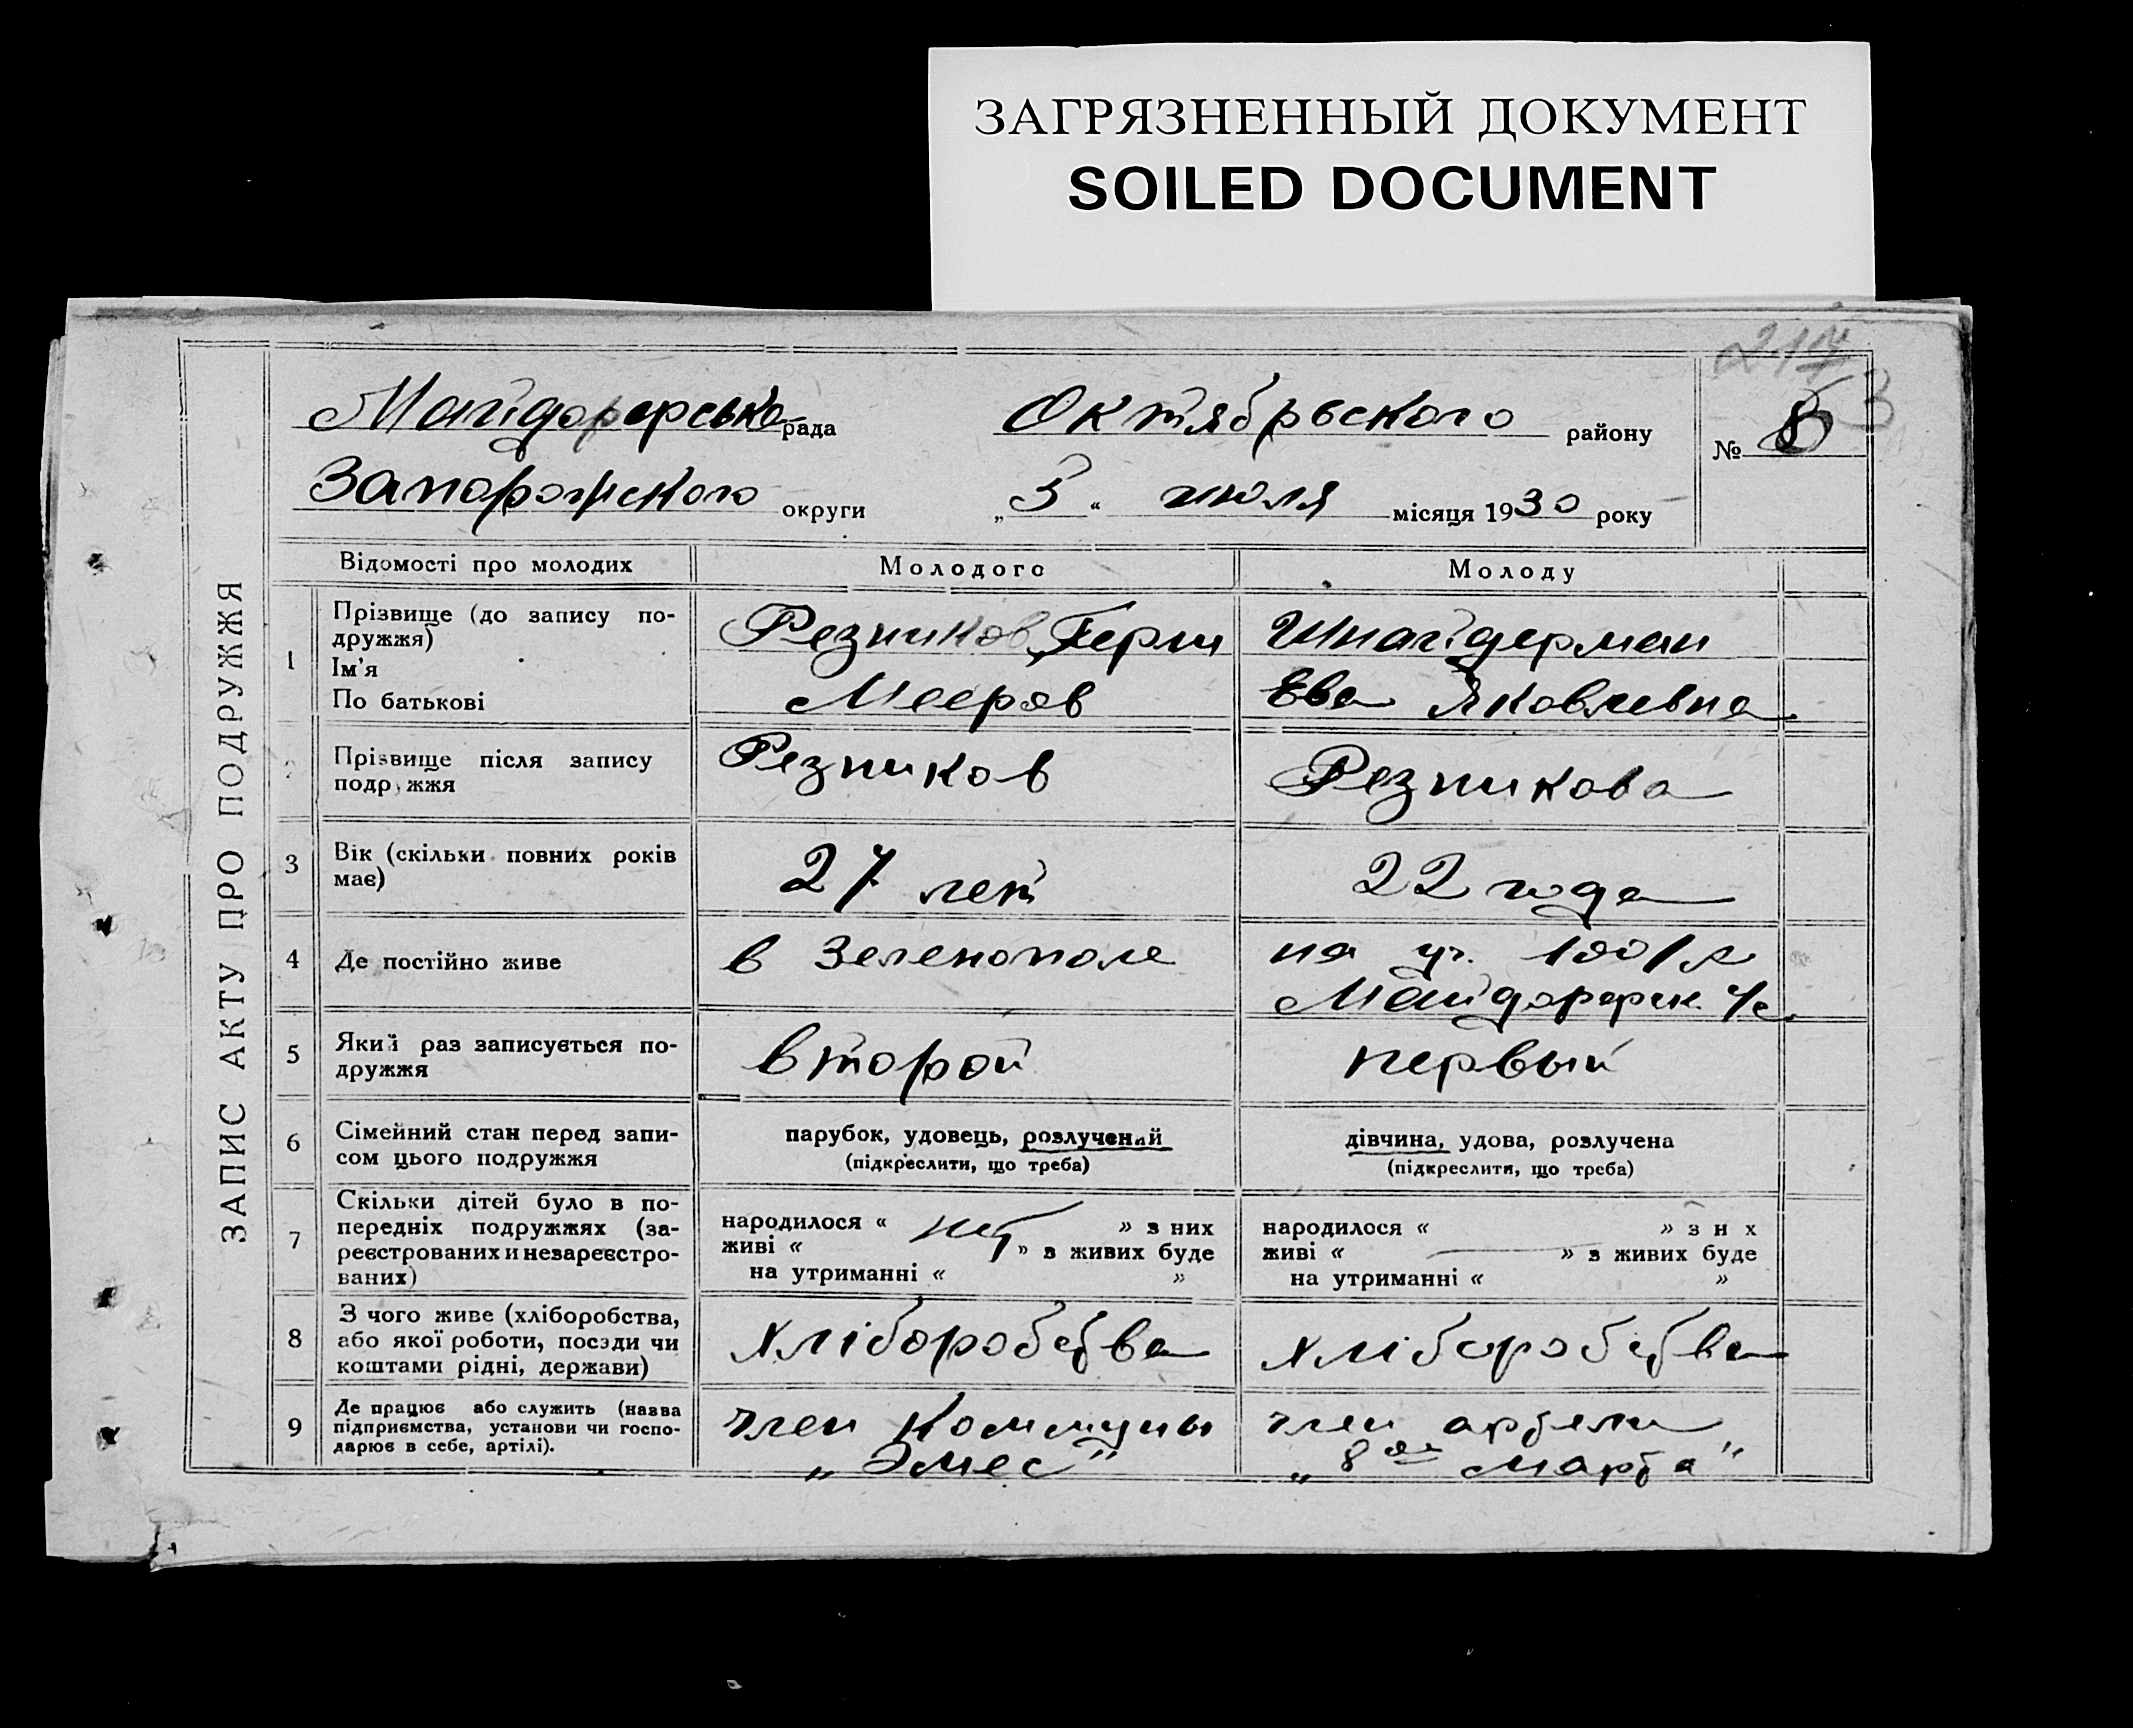 ЗАГРЯЗНЕННЫЙ ДОКУМЕНТ
SOILED DOCUMENT
217
Майдорфська рада Октябрьского району № 8
Запорожского округи „3“ июля місяця 1930 року
ЗАПИС АКТУ ПРО ПОДРУЖЖЯ
Відомості про молодих Молодого Молоду
1 Прізвище (до запису по-
дружжя)
Ім'я
По батькові
Резников Герш
Мееров
Шнайдерман
Ева Яковлевна
Прізвище після запису
подружжя
Резников
Резникова
3 Вік (скільки повних років
має)
27 лет
22 года
4 Де постійно живе
в Зеленополе
на уч.
Майдорфск. с/с
5 Який раз записується по-
дружжя
второй
первый
6 Сімейний стан перед запи-
сом цього подружжя
парубок, удовець, розлучений
(підкреслити, що треба)
дівчина, удова, розлучена
(підкреслити, що треба)
7 Скільки дітей було в по-
передніх подружжях (за-
реєстрованих и незареєстро-
ваних)
народилося « нет » з них
живі « » з живих буде
на утриманні « »
народилося « » з н х
живі « — » з живих буде
на утриманні « »
8 З чого живе (хліборобства,
або якої роботи, посади чи
коштами рідні, держави)
хліборобства
хліборобства
9 Де працює або служить (назва
підприємства, установи чи госпо-
дарює в себе, артілі).
член коммуны
„Эмес“
член артели
„8ое Марта“